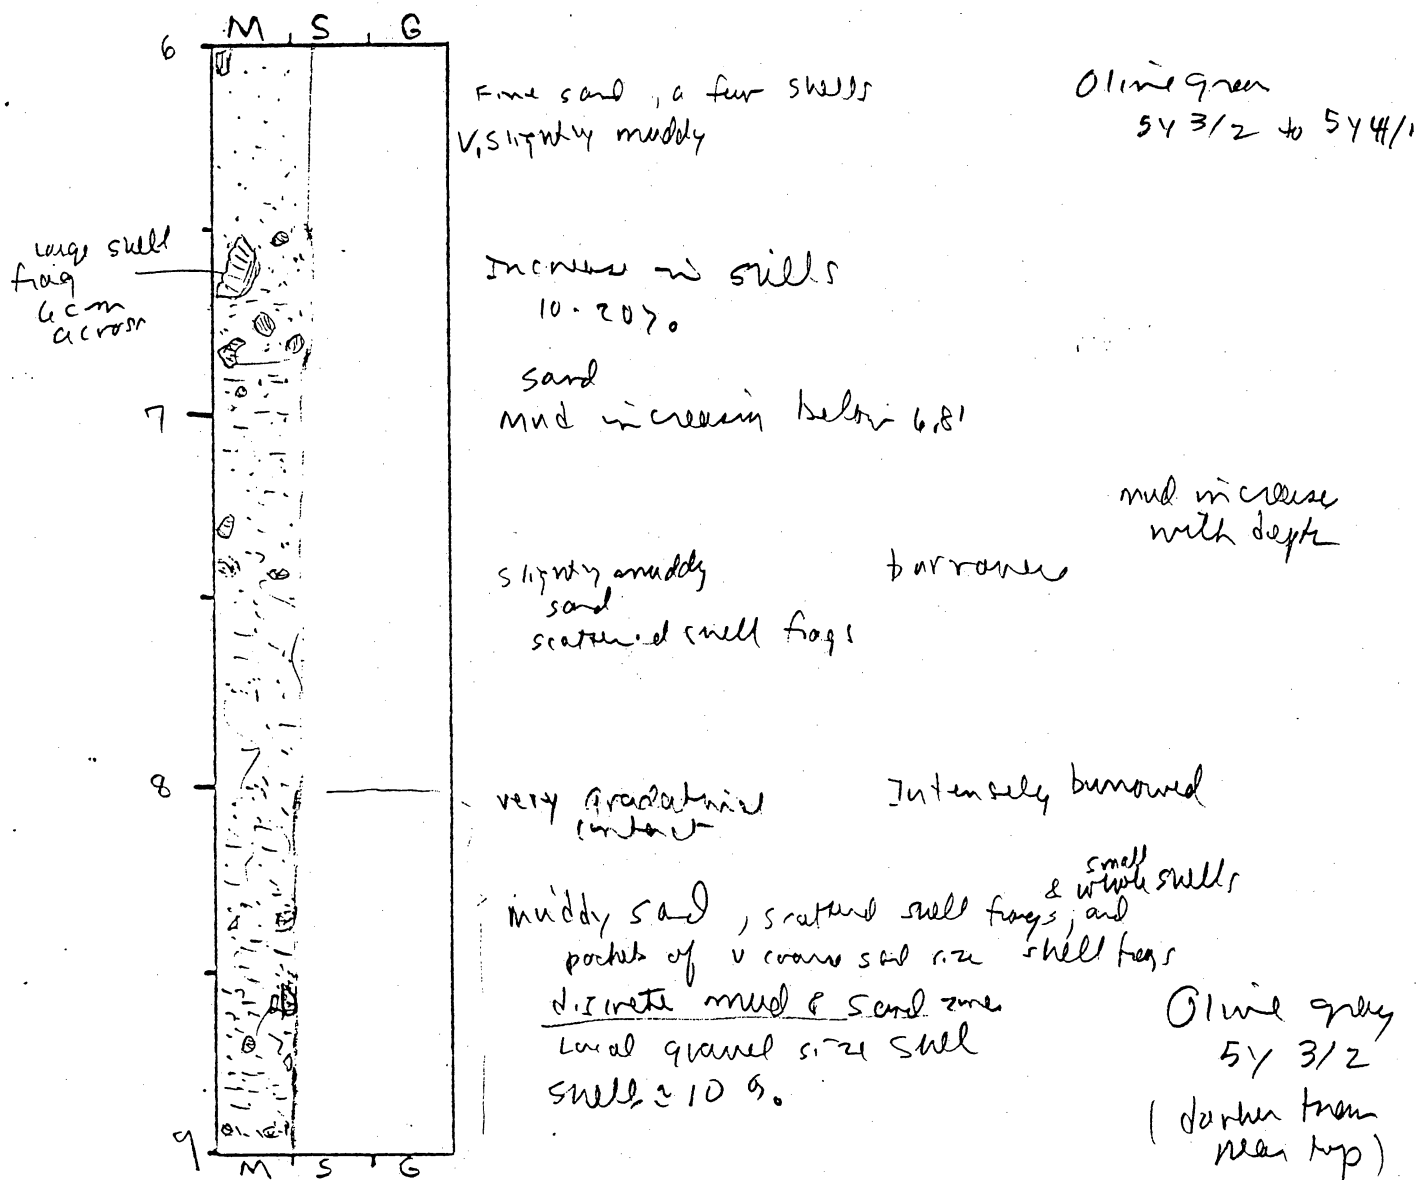 M S G
6
Fine sand, a few shells
V. slightly muddy
Olive gray
5Y 3/2 to 5Y 4/1
large shell
frag
6 cm
across
Increase in shells
10-20%
sand
7
mud increasin below 6.8'
mud increase
with depth
slightly muddy
sand
scattered shell frags
burrowed
8
very gradational
contact
Intensely burrowed
muddy sand, scattered shell frags, & small whole shells and
pockets of v coarse sand size shell frags
discrete mud & sand zones
Local gravel size shell
shell ≈ 10 %
Olive gray
5Y 3/2
(darker than
near top)
9
M S G